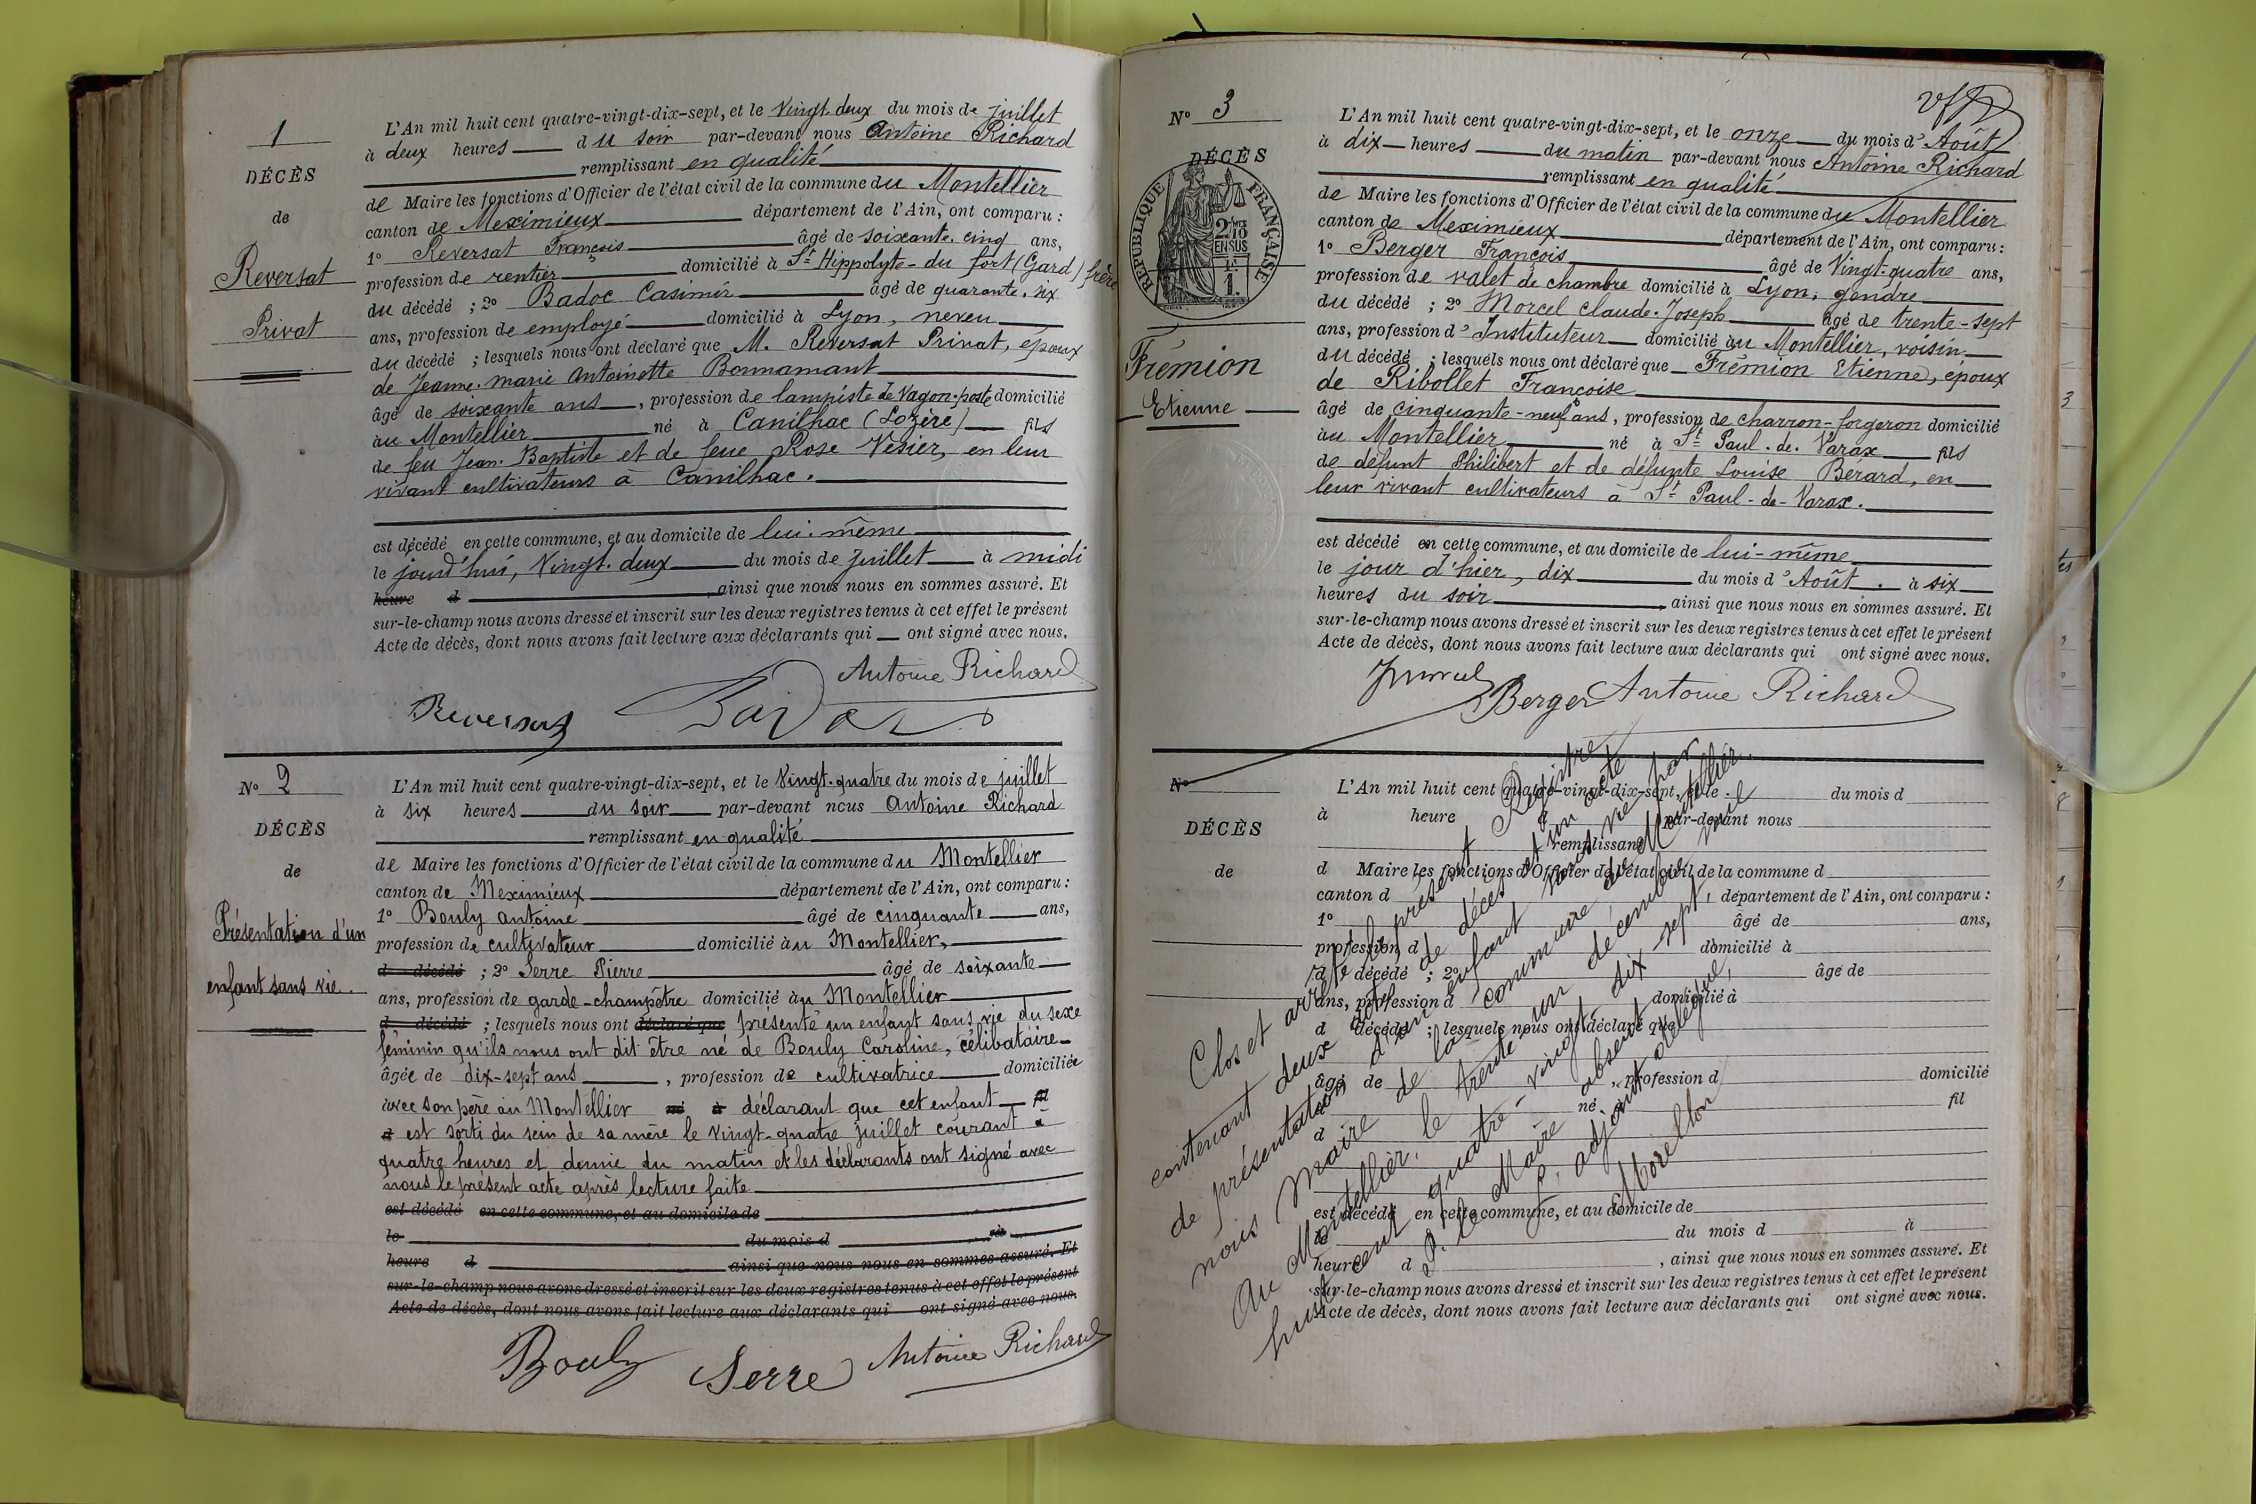 1
DÉCÈS
de
Reversat
Privat
L'An mil huit cent quatre-vingt-dix-sept, et le Vingt-deux du mois de juillet
à deux heures du soir par-devant nous Antoine Richard
remplissant en qualité
de Maire les fonctions d'Officier de l'état civil de la commune du Montellier
canton de Meximieux département de l'Ain, ont comparu :
1° Reversat François âgé de soixante-cinq ans,
profession de rentier domicilié à St Hippolyte-du fort (Gard) frère
du décédé ; 2° Badoc Casimir âgé de quarante-six
ans, profession de employé domicilié à Lyon, neveu
du décédé ; lesquels nous ont déclaré que M. Reversat Privat, époux
de Jeanne-marie Antoinette Bonnamant
âgé de soixante ans, profession de lampiste de Vagon-poste domicilié
au Montellier né à Canilhac (Lozère) fils
de feu Jean-Baptiste et de feue Rose Vésier, en leur
vivant cultivateurs à Canilhac.
est décédé en cette commune, et au domicile de lui-même
le jourd'hui, Vingt-deux du mois de juillet à midi
heure d ainsi que nous nous en sommes assuré. Et
sur-le-champ nous avons dressé et inscrit sur les deux registres tenus à cet effet le présent
Acte de décès, dont nous avons fait lecture aux déclarants qui ont signé avec nous.
Antoine Richard
Reversat Badoc
N° 2
DÉCÈS
de
Présentation d'un
enfant sans vie.
L'An mil huit cent quatre-vingt-dix-sept, et le Vingt-quatre du mois de juillet
à six heures du soir par-devant nous Antoine Richard
remplissant en qualité
de Maire les fonctions d'Officier de l'état civil de la commune du Montellier
canton de Meximieux département de l'Ain, ont comparu :
1° Bouly Antoine âgé de cinquante ans,
profession de cultivateur domicilié au Montellier,
d décédé ; 2° Serre Pierre âgé de soixante
ans, profession de garde-champêtre domicilié au Montellier
d décédé ; lesquels nous ont déclaré que présenté un enfant sans vie du sexe
féminin qu'ils nous ont dit être né de Bouly Caroline, célibataire
âgée de dix-sept ans, profession de cultivatrice domiciliée
avec son père au Montellier né à déclarant que cet enfant fil
d est sorti du sein de sa mère le vingt-quatre juillet courant à
quatre heures et demie du matin et les déclarants ont signé avec
nous le présent acte après lecture faite
est décédé en cette commune, et au domicile de
le du mois d à
heure d ainsi que nous nous en sommes assuré. Et
sur-le-champ nous avons dressé et inscrit sur les deux registres tenus à cet effet le présent
Acte de décès, dont nous avons fait lecture aux déclarants qui ont signé avec nous.
Bouly Serre Antoine Richard
N° 3
DÉCÈS
RÉPUBLIQUE FRANÇAISE
2/10
EN SUS
Frémion
Etienne
L'An mil huit cent quatre-vingt-dix-sept, et le onze du mois d'Août
à dix heures du matin par-devant nous Antoine Richard
remplissant en qualité
de Maire les fonctions d'Officier de l'état civil de la commune du Montellier
canton de Meximieux département de l'Ain, ont comparu :
1° Berger François âgé de Vingt-quatre ans,
profession de valet de chambre domicilié à Lyon, gendre
du décédé ; 2° Morcel Claude-Joseph âgé de trente-sept
ans, profession d'Instituteur domicilié au Montellier, voisin
du décédé ; lesquels nous ont déclaré que Frémion Etienne, époux
de Ribollet Françoise
âgé de cinquante-neuf ans, profession de charron-forgeron domicilié
au Montellier né à St Paul-de-Varax fils
de défunt Philibert et de défunte Louise Bérard, en
leur vivant cultivateurs à St Paul-de-Varax.
est décédé en cette commune, et au domicile de lui-même
le jour d'hier, dix du mois d'Août à six
heures du soir ainsi que nous nous en sommes assuré. Et
sur-le-champ nous avons dressé et inscrit sur les deux registres tenus à cet effet le présent
Acte de décès, dont nous avons fait lecture aux déclarants qui ont signé avec nous.
Morcel Berger Antoine Richard
N°
DÉCÈS
de
L'An mil huit cent quatre-vingt-dix-sept, et le du mois d
à heure d par-devant nous
remplissant
d Maire les fonctions d'Officier de l'état civil de la commune d
canton d , département de l'Ain, ont comparu :
1° âgé de ans,
profession d domicilié à
d décédé ; 2° âgé de
ans, profession d domicilié à
d décédé ; lesquels nous ont déclaré que
âgé de , profession d domicilié
né à fil
d
est décédé en cette commune, et au domicile de
le du mois d à
heure d , ainsi que nous nous en sommes assuré. Et
sur-le-champ nous avons dressé et inscrit sur les deux registres tenus à cet effet le présent
Acte de décès, dont nous avons fait lecture aux déclarants qui ont signé avec nous.
Clos et arrêté le présent Registre
contenant deux actes de décès et un acte
de présentation d'un enfant sans vie par
nous Maire de la commune du Montellier.
Au Montellier, le trente-un décembre mil
huit cent quatre-vingt-dix-sept,
P. le Maire absent
L'adjoint délégué,
Morellon